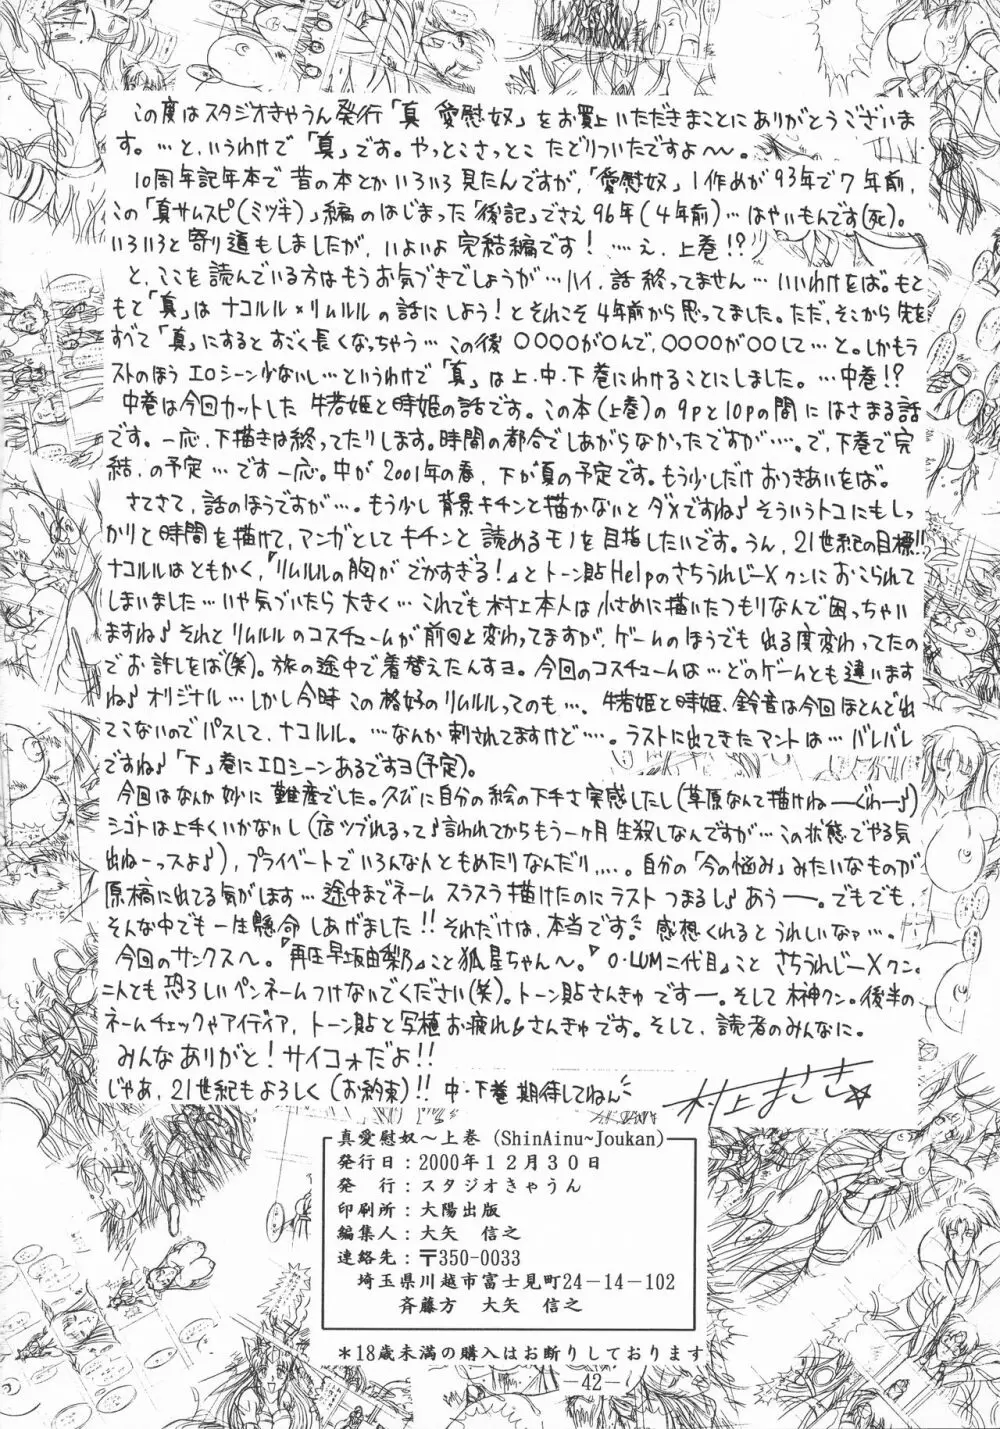 この度はスタジオきゃうん発行「真 愛慰奴」をお買上いただきまことにありがとうございま
す。…と、いうわけで「真」です。やっとこさっとこ たどりついたですよ〜〜。
10周年記年本で昔の本とかいろいろ見たんですが、「愛慰奴」1作めが93年で7年前、
この「真サムスピ(ミヅキ)」編のはじまった「後記」でさえ96年(4年前)…はやいもんです(死)。
いろいろと寄り道もしましたが、いよいよ完結編です!……え、上巻!?
と、ここを読んでいる方はもうお気づきでしょうが…ハイ、話終ってません…いいわけをば。もと
もと「真」はナコルル×リムルルの話にしよう!とそれこそ4年前から思ってました。ただ、そこから先を
すべて「真」にするとすごく長くなっちゃう…この後〇〇〇〇が〇んで、〇〇〇〇が〇〇して…と。しかもラ
ストのほうエロシーン少ないし…というわけで「真」は上・中・下巻にわけることにしました。…中巻!?
中巻は今回カットした牛若姫と時姫の話です。この本(上巻)の9pと10pの間にはさまる話
です。一応、下描きは終ってたりします。時間の都合でしあがらなかったですが…。で、下巻で完
結、の予定…です一応。中が2001年の春、下が夏の予定です。もう少しだけおつきあいをば。
さてさて、話のほうですが…。もう少し背景キチンと描かないとダメですね♪そういうトコにもしっ
かりと時間を描けて、マンガとしてキチンと読めるモノを目指したいです。うん、21世紀の目標!!
ナコルルはともかく、『リムルルの胸がでかすぎる!』とトーン貼HelpのさちうれじーXクンにおこられて
しまいました…いや気づいたら大きく…これでも村上本人は小さめに描いたつもりなんで困っちゃい
ますね♪それとリムルルのコスチュームが前回と変わってますが、ゲームのほうでも出る度変わってたの
でお許しをば(笑)。旅の途中で着替えたんすヨ。今回のコスチュームは…どのゲームとも違います
ね♪オリジナル…しかし今時この格好のリムルルってのも…、牛若姫と時姫、鈴音は今回ほとんど出
てこないのでパスして、ナコルル。…なんか刺されてますけど…。ラストに出てきたマントは…バレバレ
ですね♪「下」巻にエロシーンあるですヨ(予定)。
今回はなんか妙に難産でした。久びに自分の絵の下手さ実感したし(草原なんて描けねーーぐわー♪)
シゴトは上手くいかないし(店ツブれるって♪言われてからもう一ヶ月生殺しなんですが…この状態でやる気
出ねーっスよ♪)、プライベートでいろんな人ともめたりなんだり…。自分の「今の悩み」みたいなものが
原稿に出てる気がします…途中までネームスラスラ描けたのにラストつまるし♪あうーー。でもでも、
そんな中でも一生懸命しあげました!!それだけは、本当です。感想くれるとうれしいなァ…。
今回のサンクスへ。『再圧早坂由梨乃』こと狐星ちゃん〜。『O・LUM二代目』ことさちうれじーXクン。
二人とも恐ろしいペンネームつけないでください(笑)。トーン貼さんきゅですー。そして榊クン。後半の
ネームチェックやアイディア、トーン貼と写植お疲れ&さんきゅです。そして、読者のみんなに。
みんなありがと!サイコォだよ!!
じゃあ、21世紀もよろしく(お約束)!!中・下巻期待してねん
村上まさき☆
真愛慰奴〜上巻 (ShinAinu~Joukan)
発行日:2000年12月30日
発　行:スタジオきゃうん
印刷所:大陽出版
編集人:大矢　信之
連絡先:〒350-0033
埼玉県川越市富士見町24-14-102
斉藤方　大矢　信之
*18歳未満の購入はお断りしております
-42-